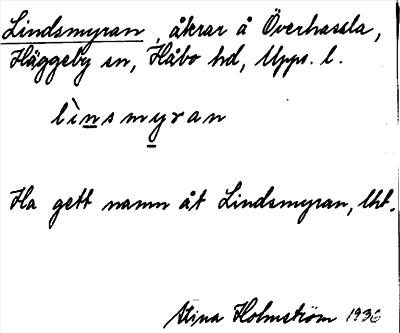 Lindsmyran, åkrar å Överhassla,
Häggeby sn, Håbo hd, Upps. l.
lìnsmyran
Ha gett namn åt Lindsmyran, lht.
Stina Holmström 1936